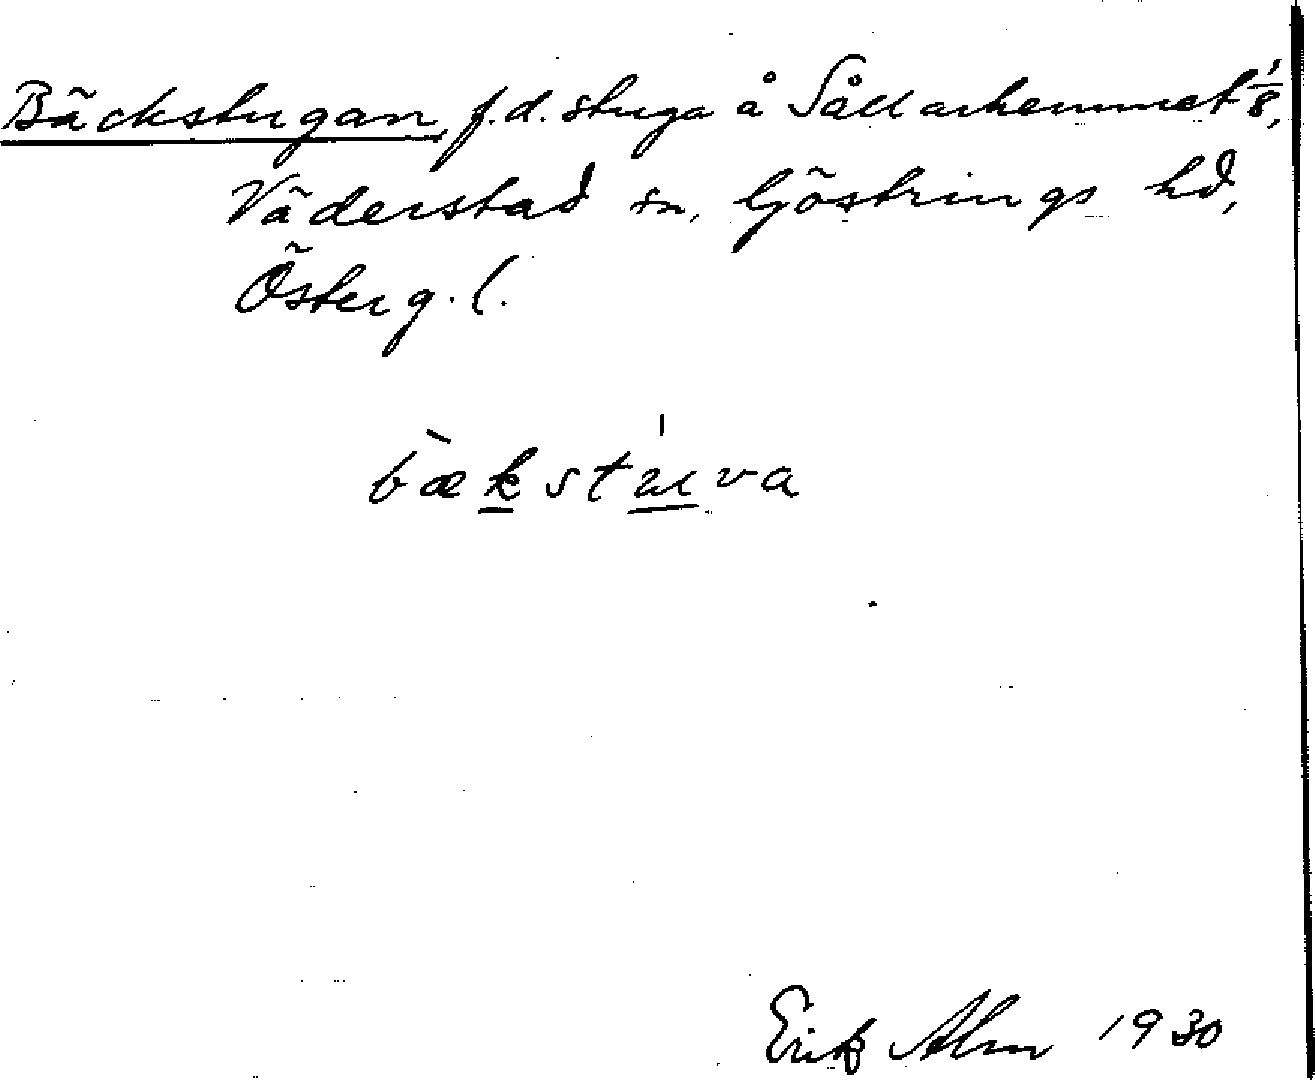 Bäckstugan, f.d. stuga å Sållarhemmet 1/8,
Väderstad sn, Göstrings hd,
Österg. l.
bækstuva
Erik Alm 1930